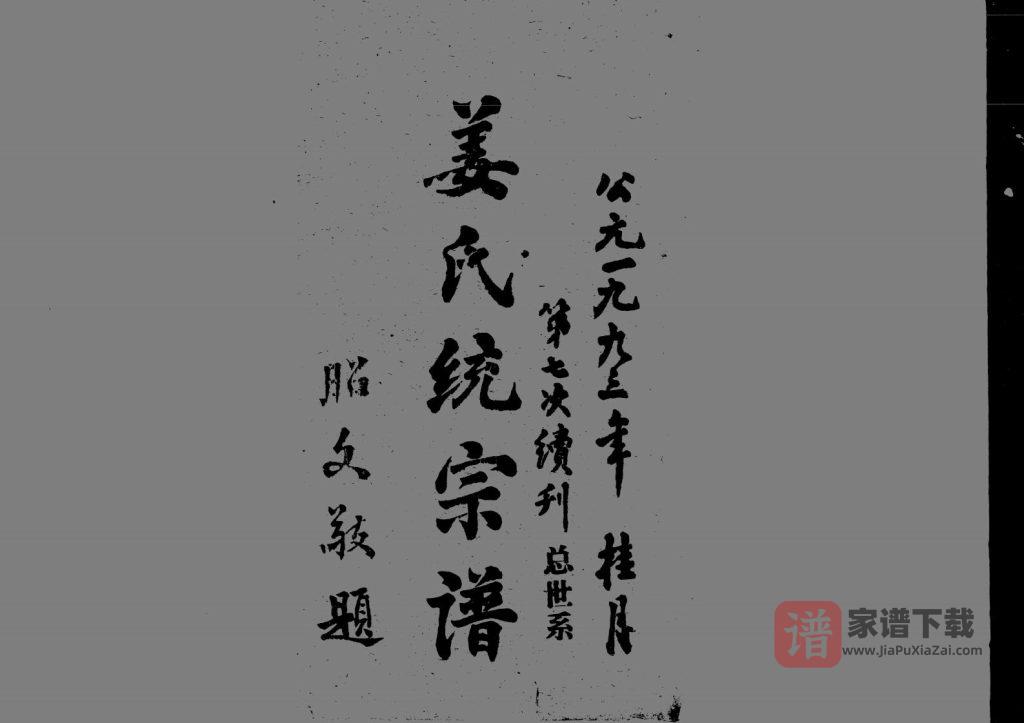 公元一九九三年 桂月
第七次續刊 总世系
姜氏统宗谱
昭文敬題
谱
家谱下载
www.JiaPuXiaZai.com